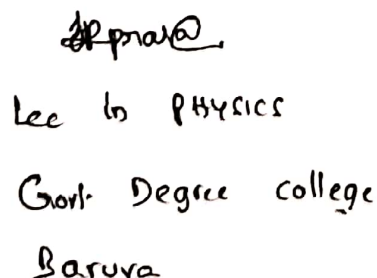 Lec in PHYSICS
Govt. Degree college
Baruva